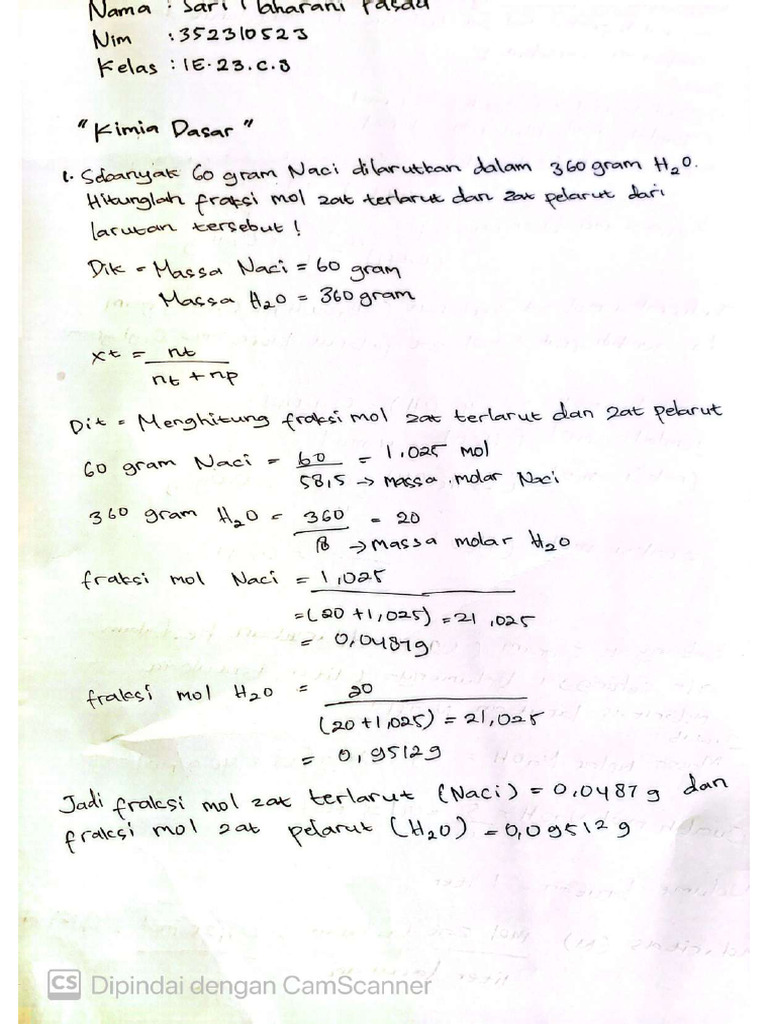 Nama : Sari Maharani Pasdu
Nim : 352310523
Kelas : IE.23.C.3
"Kimia Dasar"
1. Sebanyak 60 gram Nacl dilarutkan dalam 360 gram H₂O.
Hitunglah fraksi mol zat terlarut dan zat pelarut dari
larutan tersebut !
Dik = Massa Nacl = 60 gram
Massa H₂O = 360 gram
xt = nt
nt + np
Dit = Menghitung fraksi mol zat terlarut dan zat pelarut
60 gram Nacl = 60 = 1,025 mol
58,5 → massa molar Nacl
360 gram H₂O = 360 = 20
18 → massa molar H₂O
fraksi mol Nacl = 1,025
=(20 +1,025) = 21,025
= 0,0487g
fraksi mol H₂O = 20
(20+1,025) = 21,025
= 0,9512g
Jadi fraksi mol zat terlarut (Nacl) = 0,0487 g dan
fraksi mol zat pelarut (H₂O) = 0,09512 g
CS Dipindai dengan CamScanner